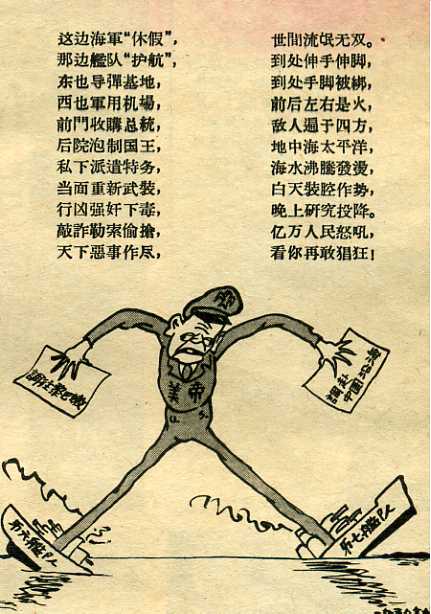 这边海軍“休假”，
那边艦队“护航”，
东也导彈基地，
西也軍用机場，
前門收購总統，
后院泡制国王，
私下派遣特务，
当面重新武裝，
行凶强奸下毒，
敲詐勒索偷搶，
天下惡事作尽，
世間流氓无双。
到处伸手伸脚，
到处手脚被綁，
前后左右是火，
敌人遍于四方，
地中海太平洋，
海水沸騰發燙，
白天裝腔作势，
晚上研究投降。
亿万人民怒吼，
看你再敢猖狂！
調往黎巴嫩
調往中国沿海
美帝
U.S.
第六艦队
第七艦队